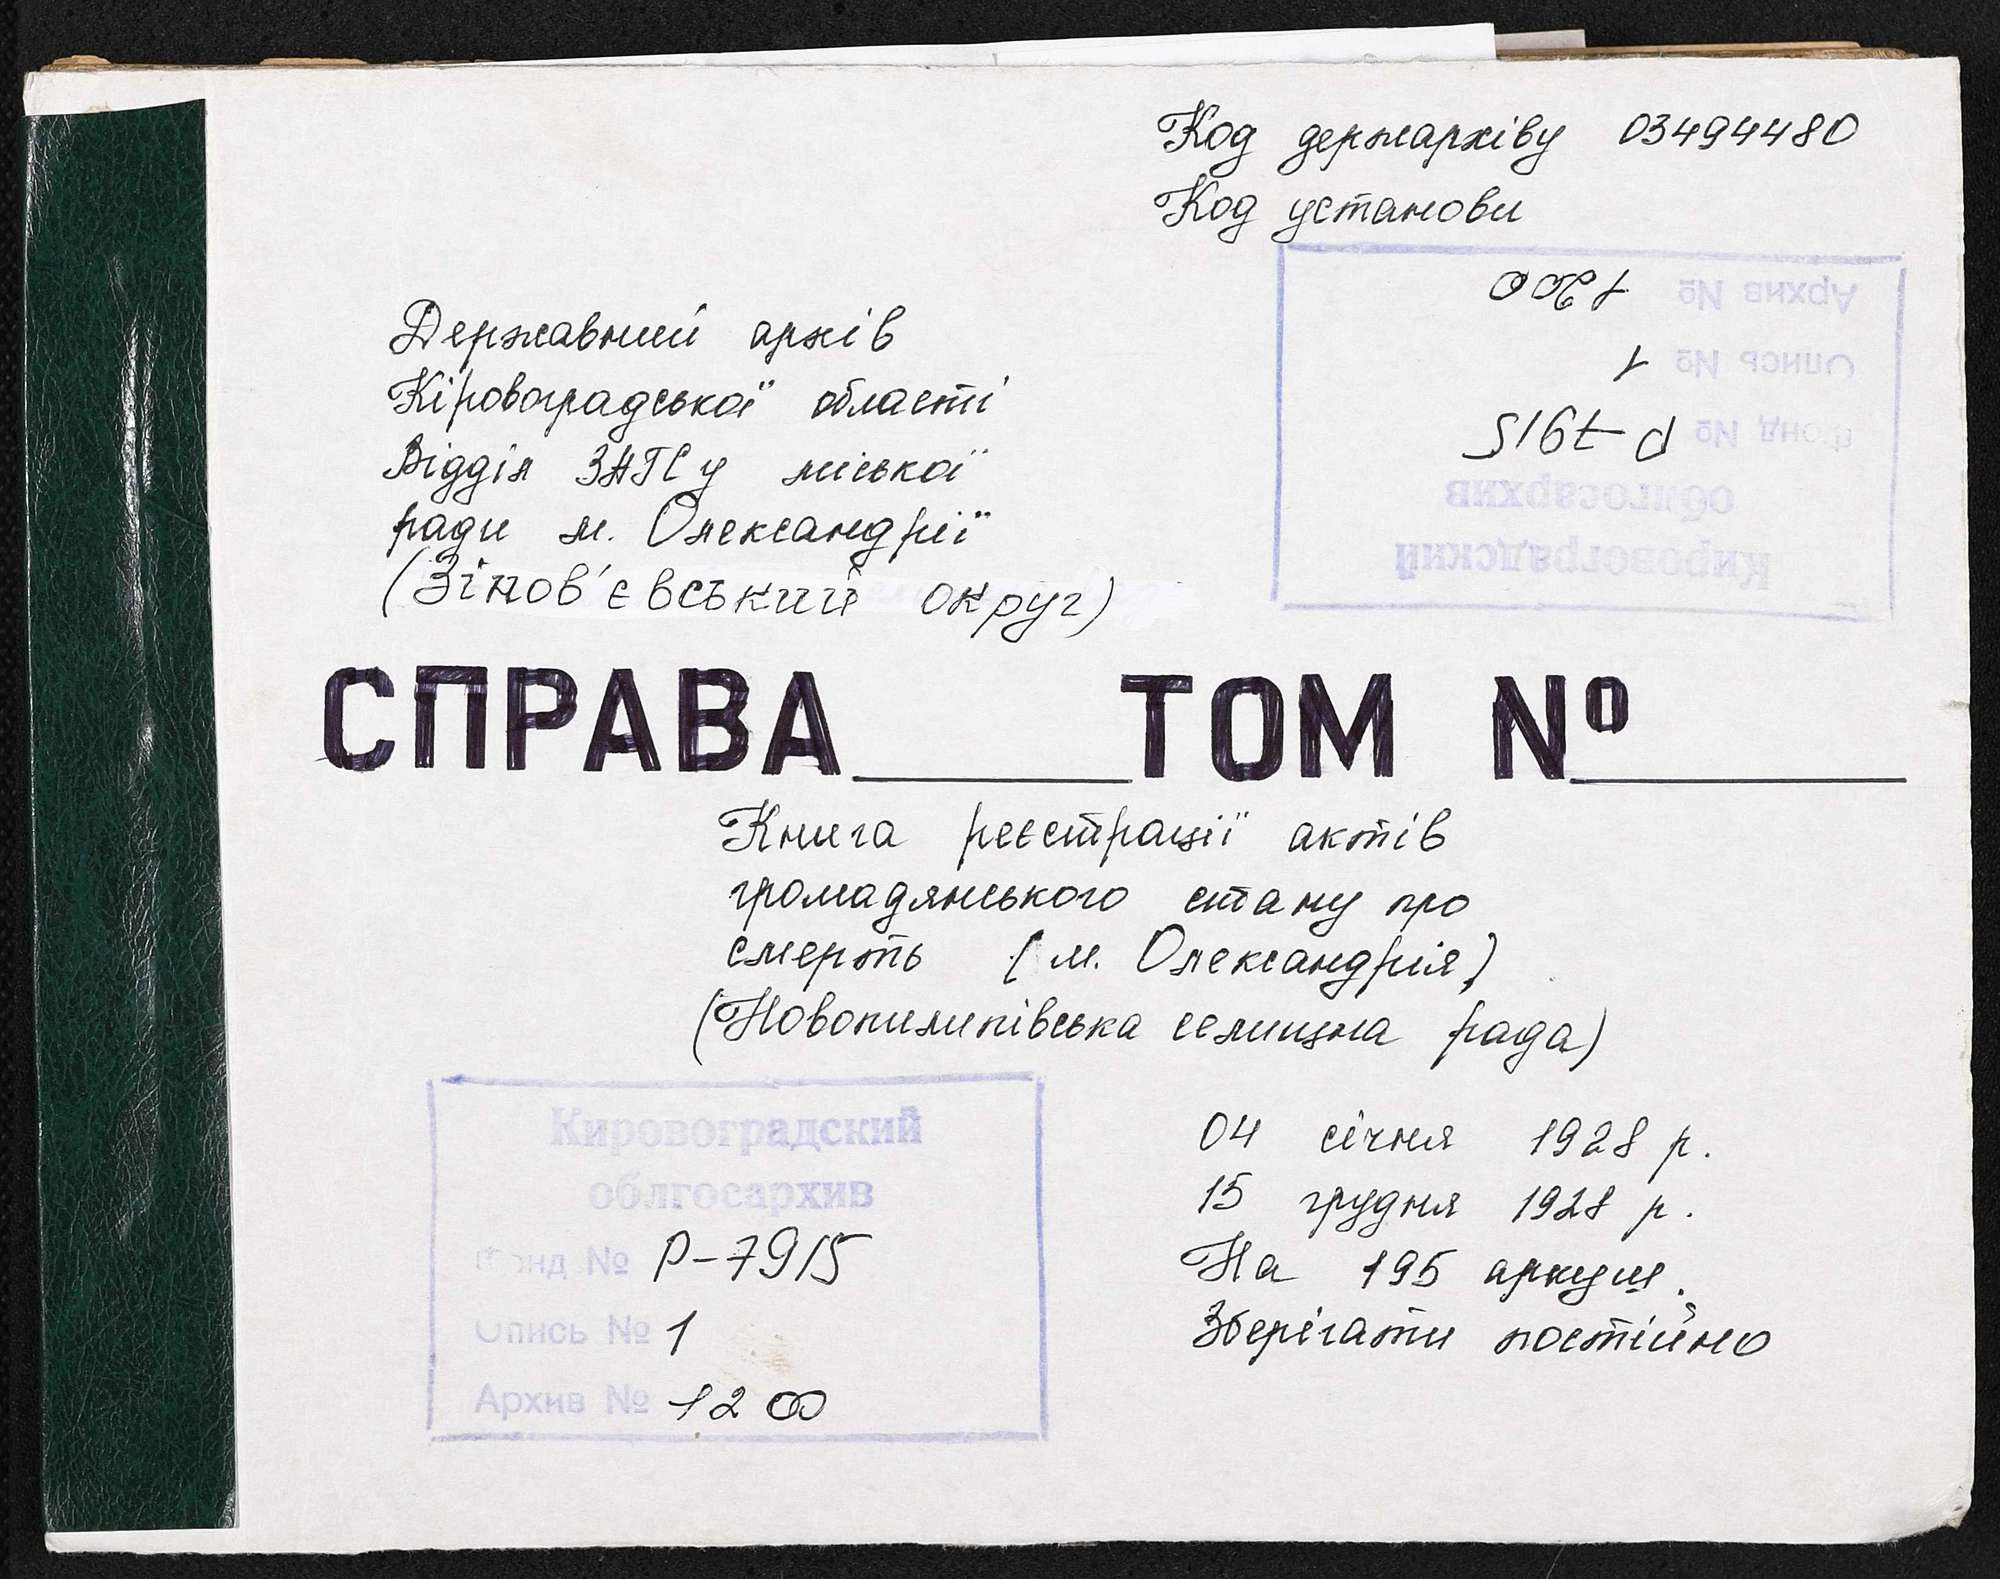 Код держархіву 03494480
Код установи
Архив № 1200
Опись № 1
Фонд № Р-7915
облгосархив
Кировоградский
Державний архів
Кіровоградської області
Відділ ЗАГСу міської
ради м. Олександрії
(Зінов'євський округ)
СПРАВА ТОМ №
Книга реєстрації актів
громадянського стану про
смерть (м. Олександрія)
(Новопилипівська селищна рада)
Кировоградский
облгосархив
Фонд № Р-7915
Опись № 1
Архив № 1200
04 січня 1928 р.
15 грудня 1928 р.
На 195 аркуш.
Зберігати постійно